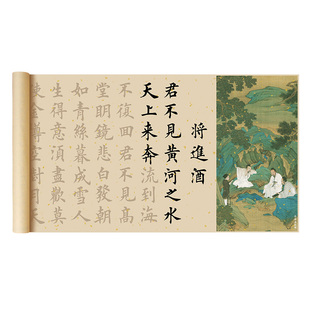 將進酒
君不見黄河之水
天上来奔流到海
不復回君不見高
堂明鏡悲白發朝
如青絲暮成雪人
生得意須盡歡莫
使金樽空對月天